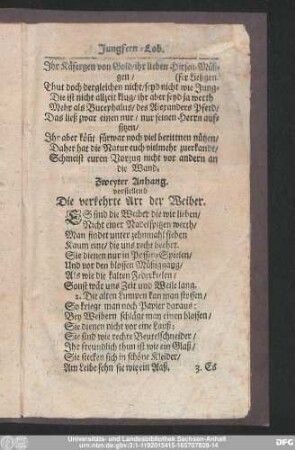 Jungfern-Lob.
Ihr Käfergen von Gold/ihr lieben Hirsen-Müß-
gen/ (ßer Liebgen
Thut doch dergleichen nicht/seyd nicht wie Jung-
Die ist nicht allzeit klug/ihr aber seyd ja werth
Mehr als Bucephalus/des Alexanders Pferd/
Das ließ zwar einen nur/nur seinen Herrn auff-
sitzen/
Ihr aber könt fürwar noch viel berittnen nützen/
Daher hat die Natur euch vielmehr zuerkandt/
Schmeist euren Vorzug nicht vor andern an
die Wand.
Zweyter Anhang.
vorstellend
Die verkehrte Art der Weiber.
ES sind die Weiber die wir lieben/
Nicht einer Nadelspitzen werth/
Man findet unter zehnmahl sieben
Kaum eine/ die uns recht beehrt.
Sie dienen nur in Possen-Spielen/
Und vor den blossen Müßiggang/
Als wie die kalten Federkielen/
Sonst wäre uns Zeit und Weile lang.
2. Die alten Lumpen kan man stossen/
So kriegt man noch Papier daraus:
Bey Weibern schlägt man einen blossen/
Sie dienen nicht vor eine Lauß:
Sie sind wie rechte Beutelschneider/
Ihr freundlich thun ist wie ein Glaß/
Sie stecken sich in schöne Kleider/
Am Leibe sehn sie wie ein Aaß. 3. Es
Universitäts- und Landesbibliothek Sachsen-Anhalt
urn:nbn:de:gbv:3:1-1192015415-165707828-14
DFG